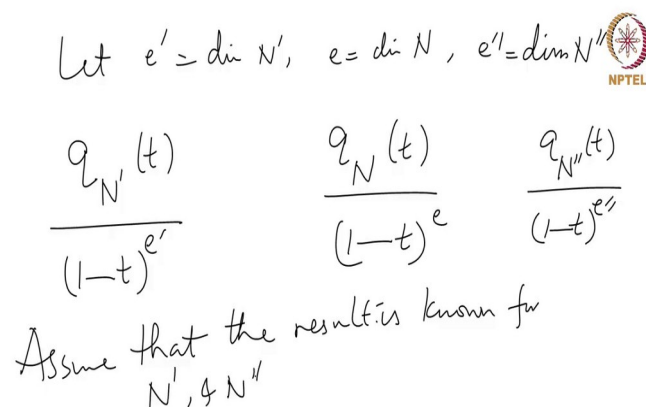 Let e' = dim N', e = dim N, e'' = dim N''
NPTEL
q_{N'}(t) / (1-t)^{e'}   q_N(t) / (1-t)^e   q_{N''}(t) / (1-t)^{e''}
Assume that the result is known for
N', & N''